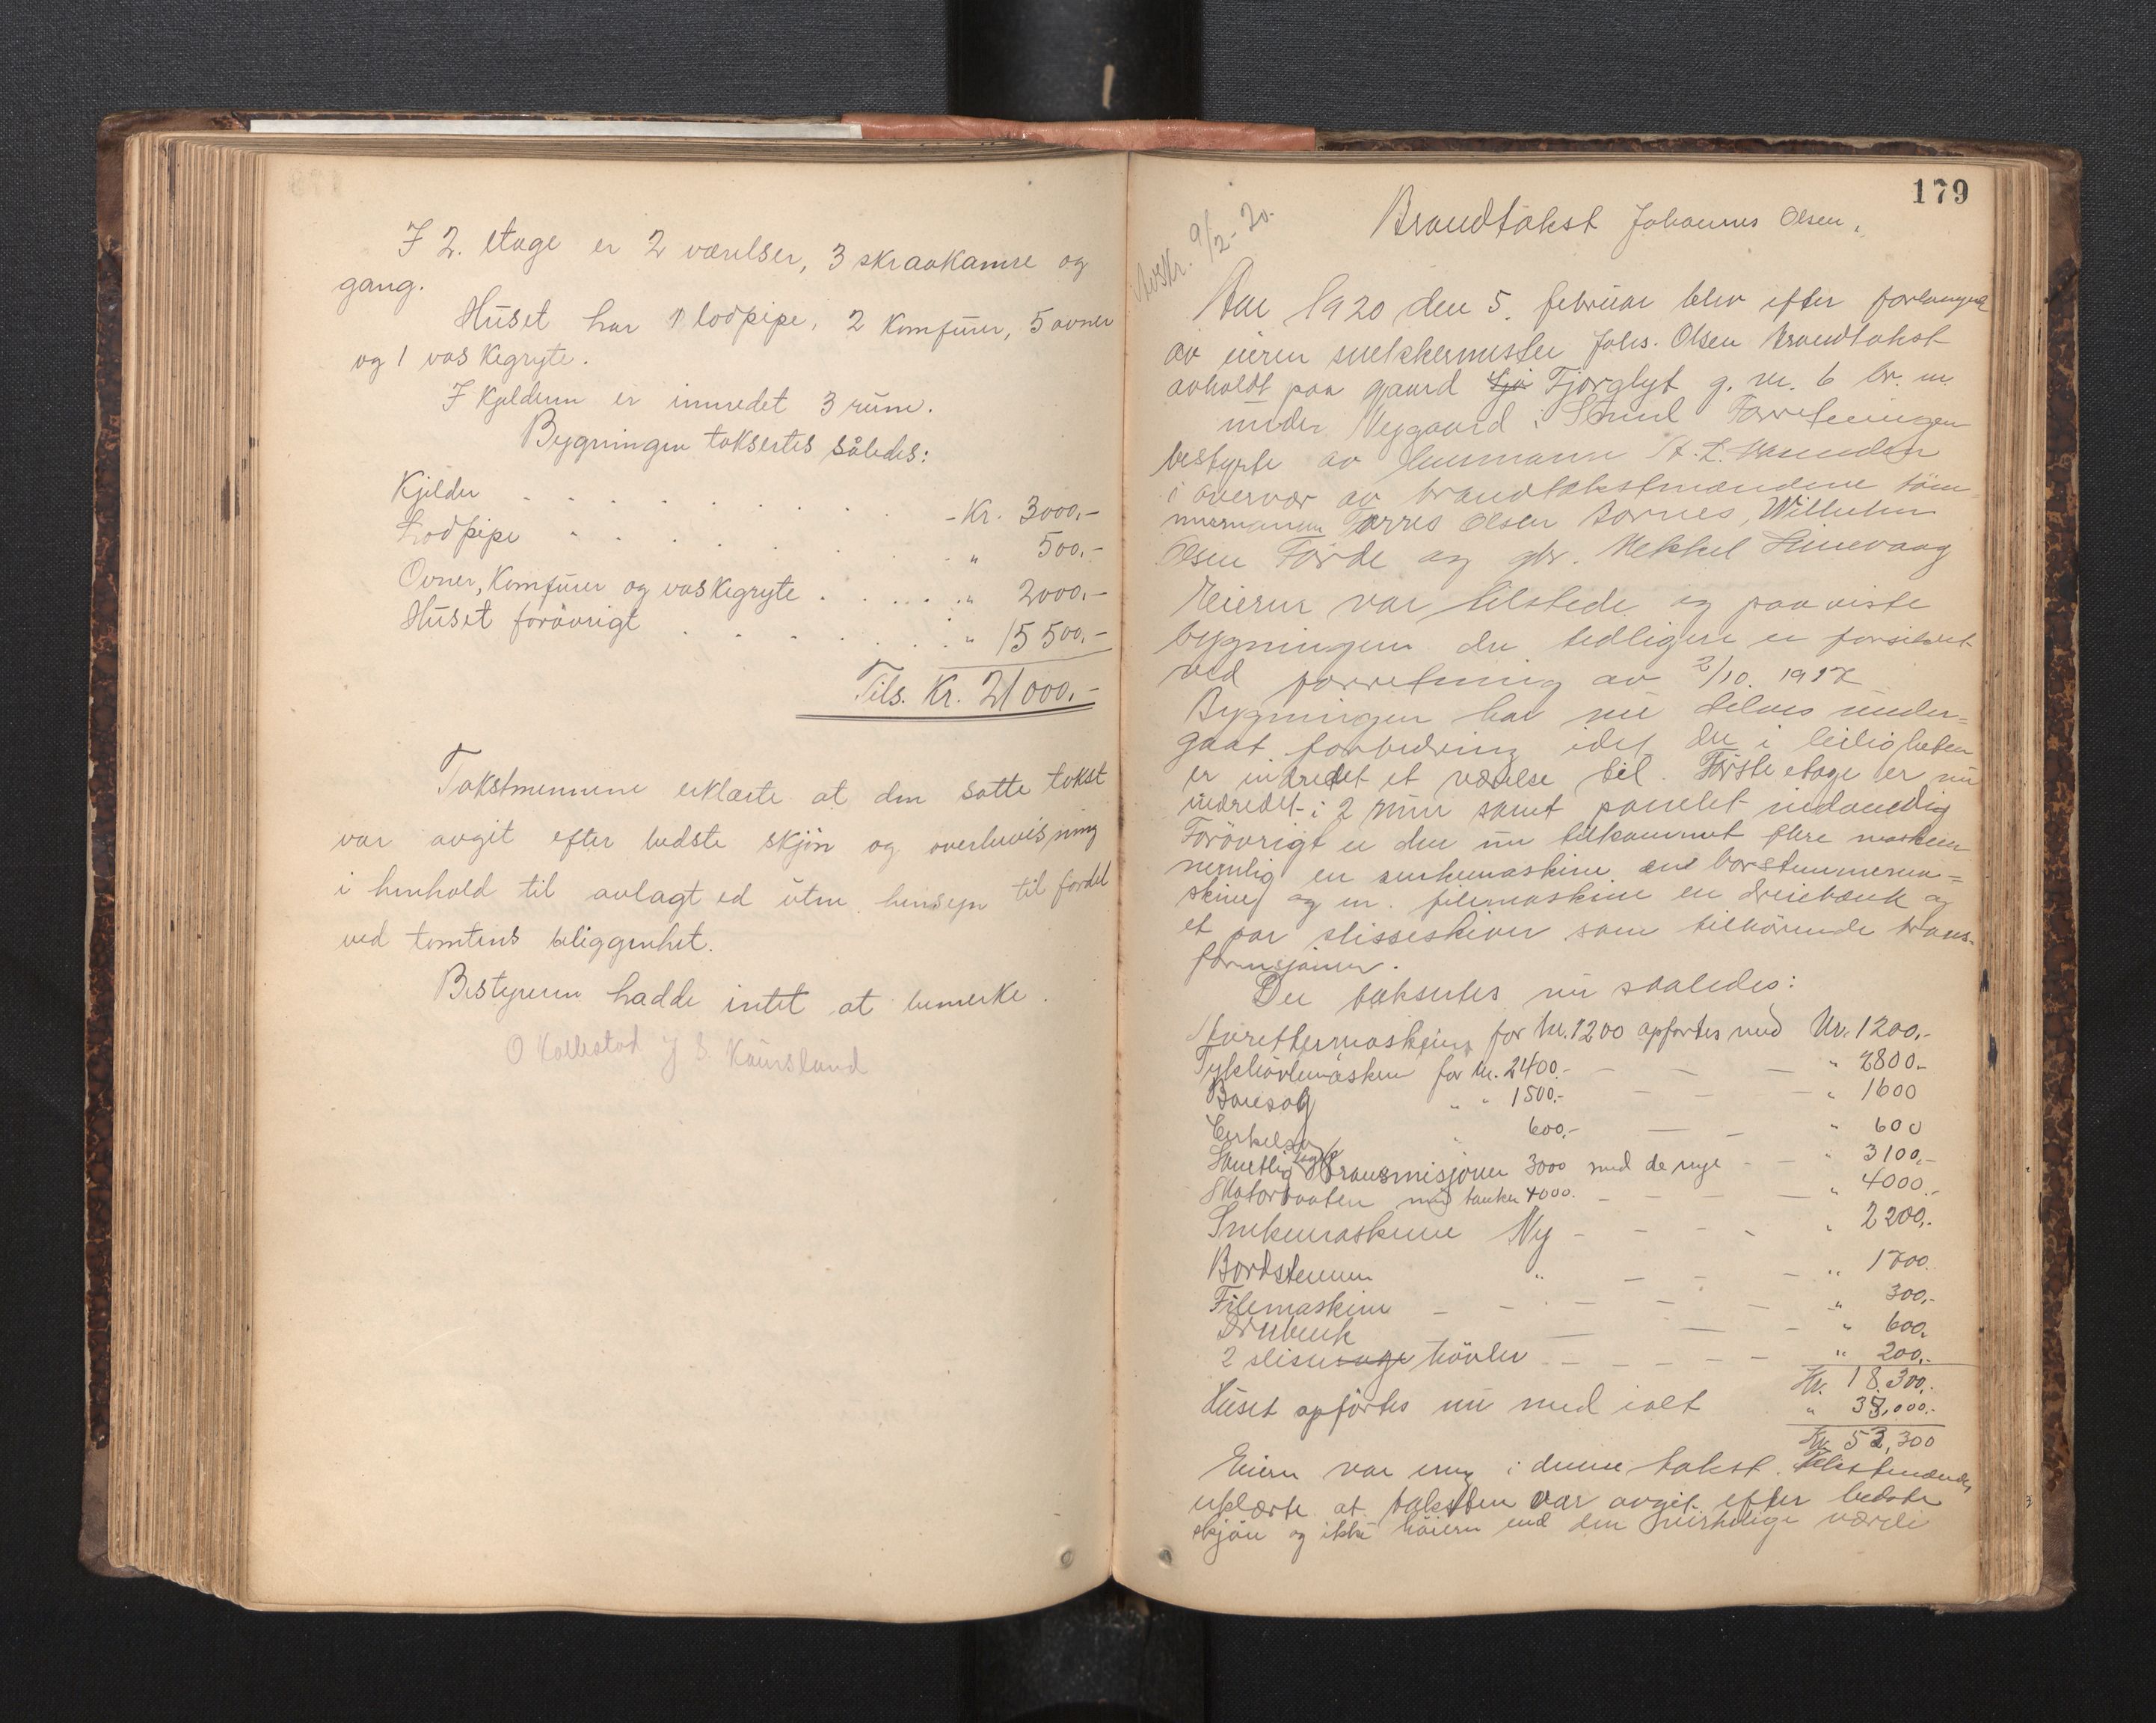 I 2. etage er 2 værelser, 3 skraakamre og
gang.
Huset har 1 lodpipe, 2 Komfurer, 5 ovner
og 1 vaskegryte.
I Kjelderen er innredet 3 rum.
Bygningen taksertes således:
Kjelder - Kr. 3000,-
Lodpipe " 500.-
Ovner, Komfurer og vaskegryte " 2000.-
Huset forövrigt " 15500.-
Tils. Kr. 21000.-
Takstmennene erklærte at den satte takst
var avgit efter bedste skjön og overbevisning
i henhold til avlagt ed uten hensyn til fordel
ved tomtens beliggenhet.
Bestyreren hadde intet at bemerke.
O Kallestad J S. Kaursland
179
Avskr. 9/2-20.
Brandtakst Johannes Olsen.
Aar 1920 den 5. februar blev efter forlangende
av eieren snekkermester Johs. Olsen Brandtakst
avholdt paa gaard Fjo Fjorglyt g. nr. 6 br. nr.
under Nygaard i Strud Forretningen
bestyrte av lensmann
i overvær av brandtakstmændene töm-
mermann Torres Olsen Bornes, Wilhelm
Olsen Förde og gbr. Mekkel
Eieren var tilstede og paaviste
bygningen der tidligere er forsikret
ved forretning av 2/10. 1917
Bygningen har nu delvis under-
gaat forbedring idet der i leiligheten
er indredet et værelse til. Förste etage er nu
indredet i 2 rum samt panelet indvendig
Forövrigt er der nu tilkommet flere maskiner
nemlig en sinkemaskine, en borstemmema-
skine og en filemaskine en dreiebænk og
et par slisseskiver som tilhörende trans-
formsjoner.
Der taksertes nu saaledes:
Avrettermaskin for kr. 1200 opfortes med Kr. 1200.-
Tykhövlemaskin for kr. 2400.- " 2800.-
Bansag " " 1500.- " 1600
Cirkelsag " 600.- " 600
Samtlige lager transmisjoner 3000 med de nye " 3100.-
Motorbaaten med tanker 4000. " 4000.-
Sinkemaskine Ny " 2200.-
Bordstemmm " " 1700.
Filemaskine " 300.-
Dreiebenk " 600.
2 slissesage hövler " 200.-
Kr. 18.300.-
Huset opförtes nu med ialt " 35,000.-
Kr. 53,300
Eieren var enig i denne takst. Takstmændene
erklærte at taksten var avgit efter bedste
skjön og ikke höiere end den virkelige værdi